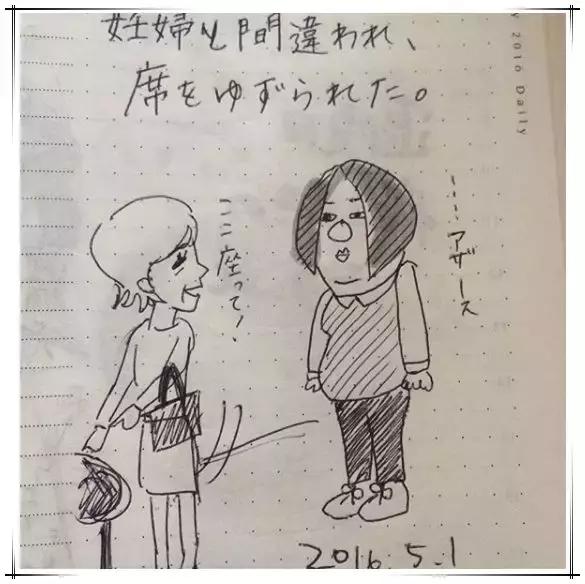 妊婦と間違われ、
席をゆずられた。
y 2016 Daily
ここ座って!
……アザース
2016.5.1